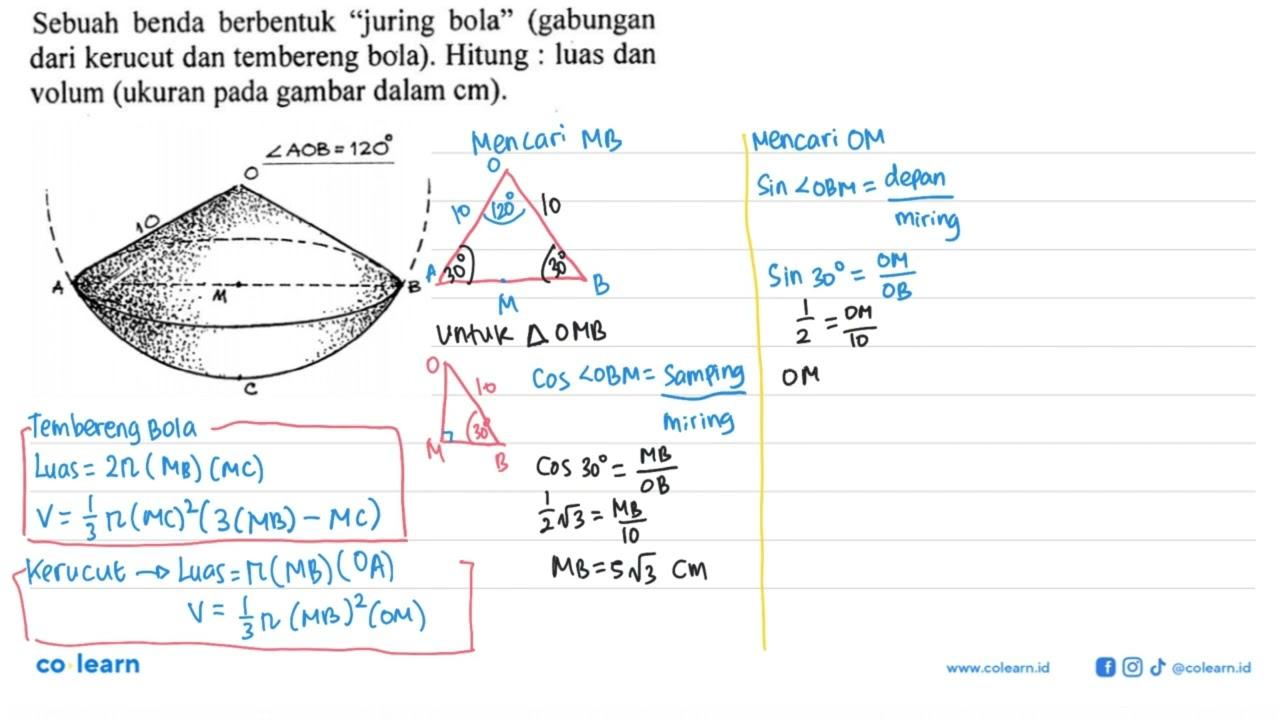 Sebuah benda berbentuk “juring bola” (gabungan
dari kerucut dan tembereng bola). Hitung : luas dan
volum (ukuran pada gambar dalam cm).
∠AOB = 120°
O
10
A
M
B
C
Mencari MB
O
10
120°
10
A
30°
30°
B
M
Untuk △ OMB
O
10
30°
M
B
Cos ∠OBM = Samping / Miring
Cos 30° = MB / OB
1/2 √3 = MB / 10
MB = 5√3 cm
Mencari OM
Sin ∠OBM = depan / miring
Sin 30° = OM / OB
1/2 = OM / 10
OM
Tembereng Bola
Luas = 2π (MB) (MC)
V = 1/3 π (MC)² (3(MB) − MC)
Kerucut → Luas = π (MB) (OA)
V = 1/3 π (MB)² (OM)
co learn
www.colearn.id
@colearn.id